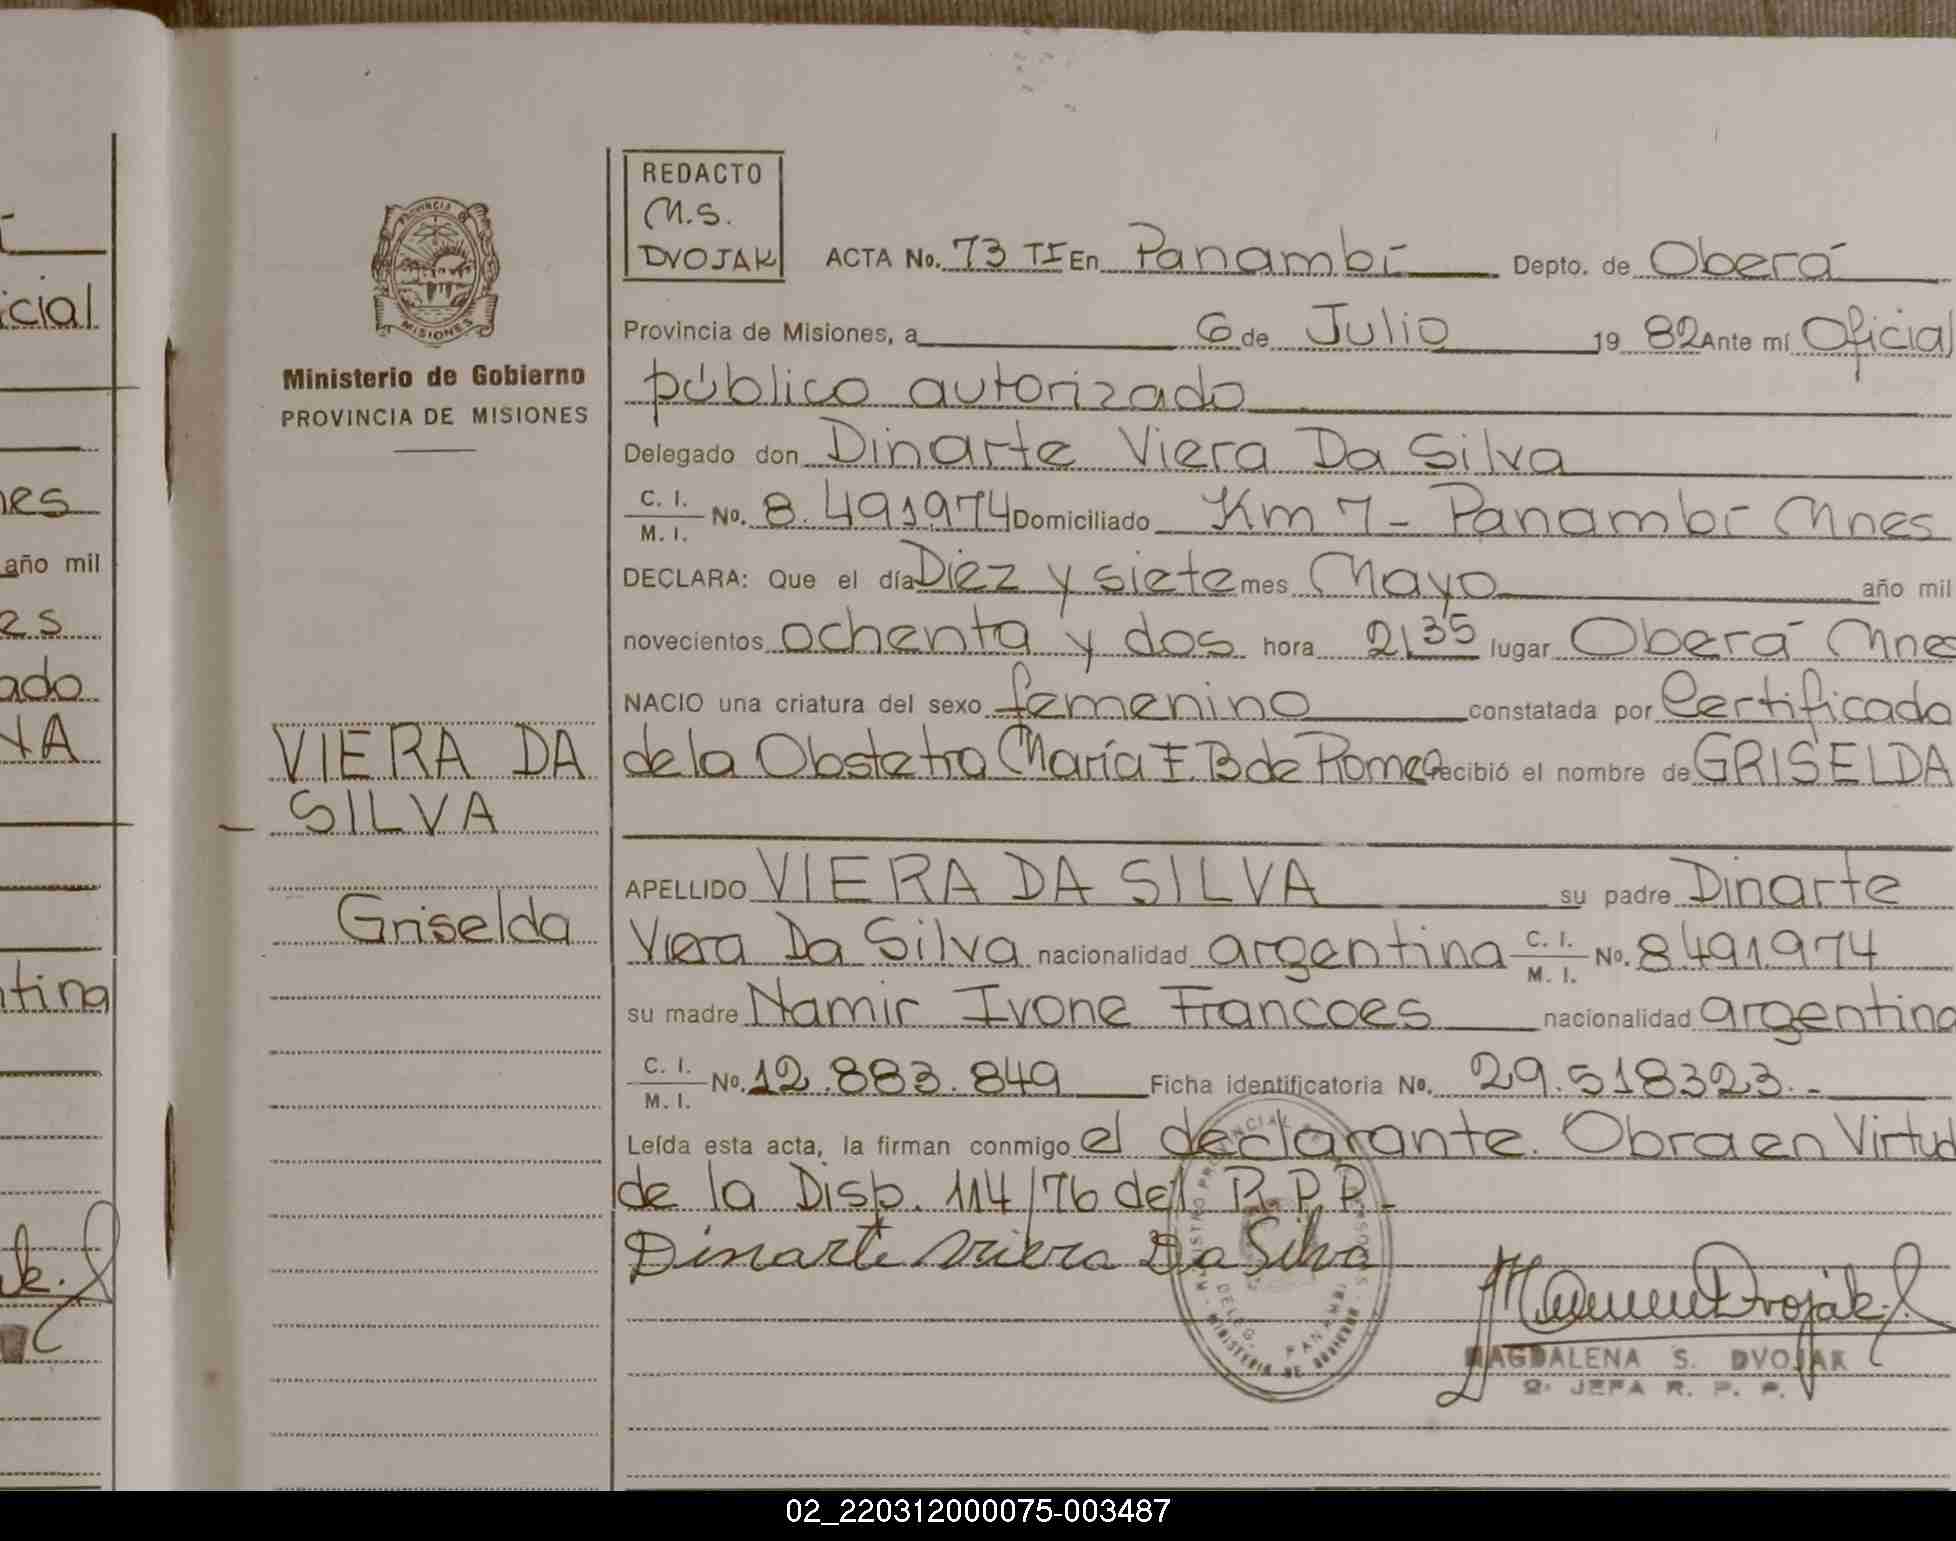 REDACTO
M.S.
DVOJAK
ACTA No. 73 TI En Panambí Depto. de Oberá
Provincia de Misiones, a 6 de Julio 19 82 Ante mí Oficial
público autorizado
Delegado don Dinarte Viera Da Silva
C. I. M. I. No. 8.491974 Domiciliado Km 7 - Panambí Mnes
DECLARA: Que el día Diez y siete mes Mayo año mil
novecientos ochenta y dos hora 21 35 lugar Oberá Mnes
NACIO una criatura del sexo femenino constatada por Certificado
de la Obstetra María E. B de Romeo recibió el nombre de GRISELDA
APELLIDO VIERA DA SILVA su padre Dinarte
Viera Da Silva nacionalidad argentina C. I. M. I. No. 8.491.974
su madre Namir Ivone Francoes nacionalidad argentina
C. I. M. I. No. 12.883.849 Ficha identificatoria No. 29.518323.-
Leída esta acta, la firman conmigo el declarante. Obra en Virtud
de la Disp. 114/76 del R.P.P.-
Dinarte Viera Da Silva
Dvojak
MAGDALENA S. DVOJAK
2ª JEFA R. P. P.
DELEG. PANAMBI
MINISTERIO DE GOBIERNO
PROVINCIA
MISIONES
Ministerio de Gobierno
PROVINCIA DE MISIONES
VIERA DA
SILVA
Griselda
icial
nes
año mil
es
ado
NA
ntina
k.
02_220312000075-003487